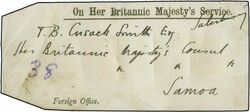 On Her Britannic Majesty's Service.
T. B. Cusack Smith Esq
Her Britannic Majesty's Consul
" " "
38
Samoa
Foreign Office.